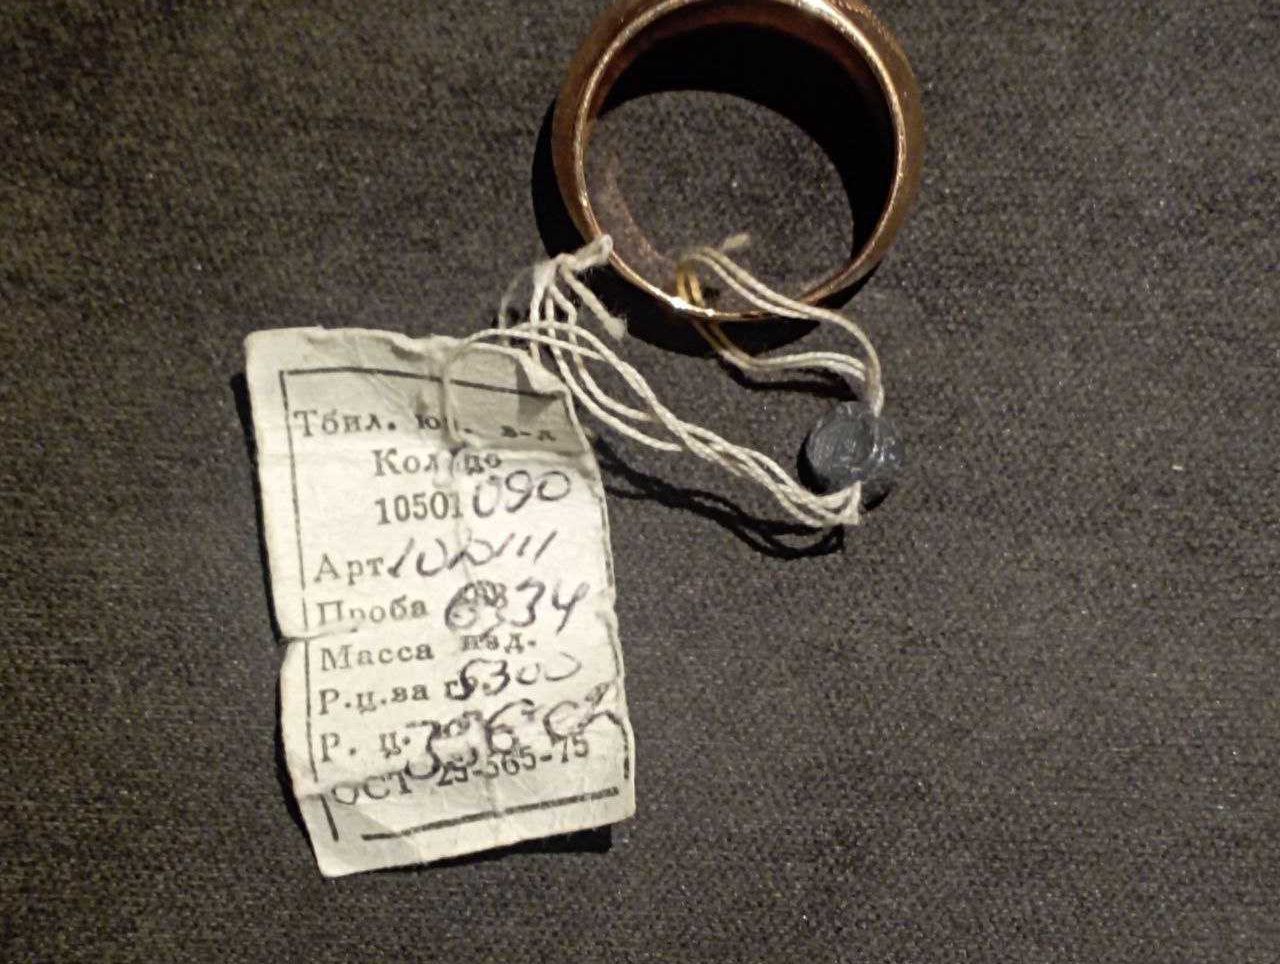 Тбил. юв. з-д
Кольцо
10501090
Арт
Проба 583
Масса изд. 6,34
Р.ц.за г 5300
Р. ц. 336
ОСТ 25-565-75